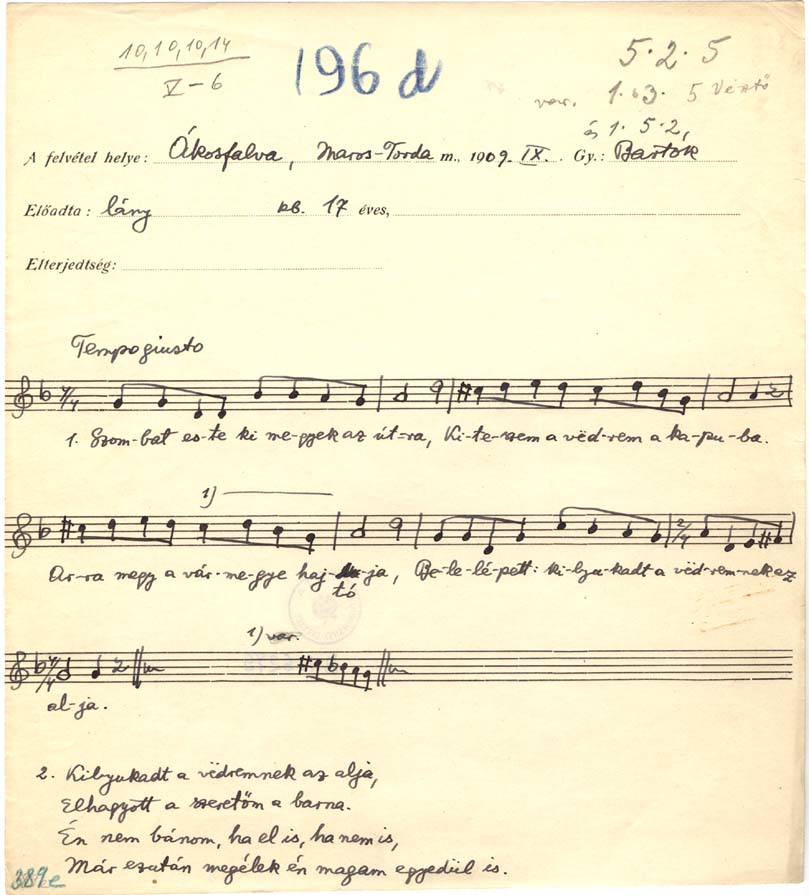 10, 10, 10, 14
V-6
196 d
5·2·5
var. 1·b3· 5 Vésztő
és 1·5·2,
A felvétel helye: Ákosfalva, Maros-Torda m., 1909. IX. Gy.: Bartók
Előadta: lány kb. 17 éves,
Elterjedtség:
Tempo giusto
1. Szom-bat es-te ki me-gyek az út-ra, Ki-te-szem a vëd-rem a ka-pu-ba.
1)
Ar-ra megy a vár-me-gye haj-tó-ja, Be-le-lépett: ki-lyu-kadt a vëd-rem-nek az
1) var.
al-ja.
2. Kilyukadt a vëdremnek az alja,
Elhagyott a szeretőm a barna.
Én nem bánom, ha el is, ha nem is,
Már ezután megélek én magam egyedül is.
389e